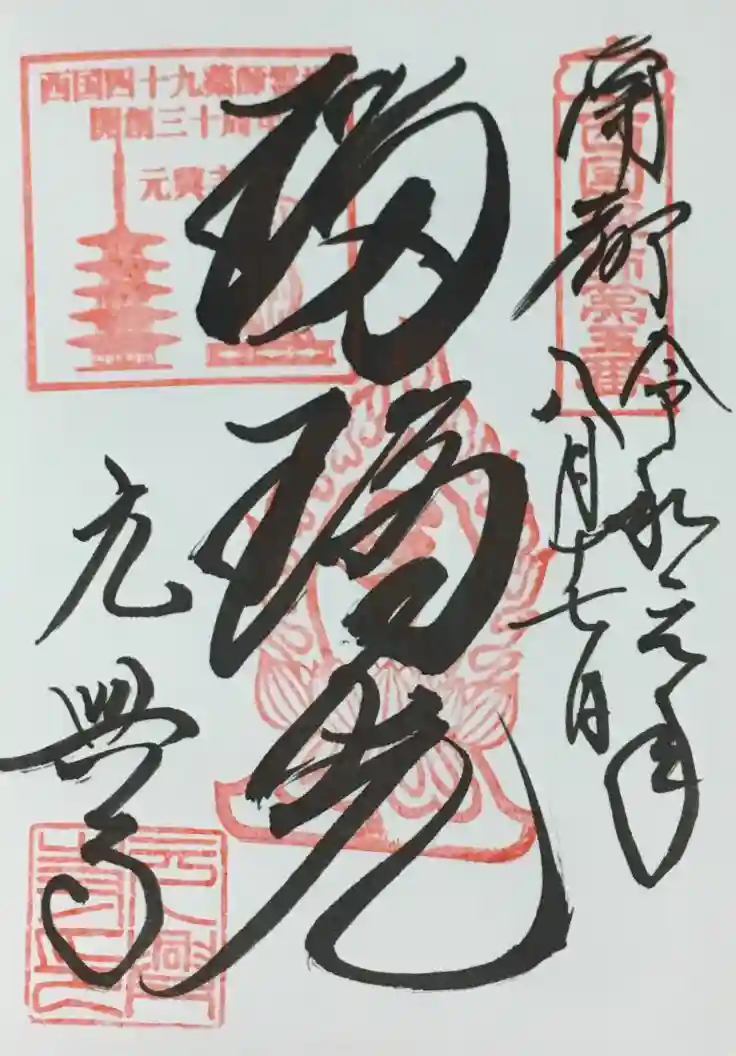 南都
令和元年
八月十七日
西国薬師第五番
瑠璃光
西国四十九薬師霊場
開創三十周年
元興寺
元興寺
元興寺印